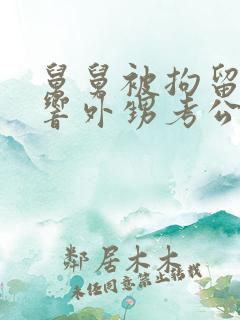 舅舅被拘留
响外甥考公
鄰居木木
未经同意禁止搭载